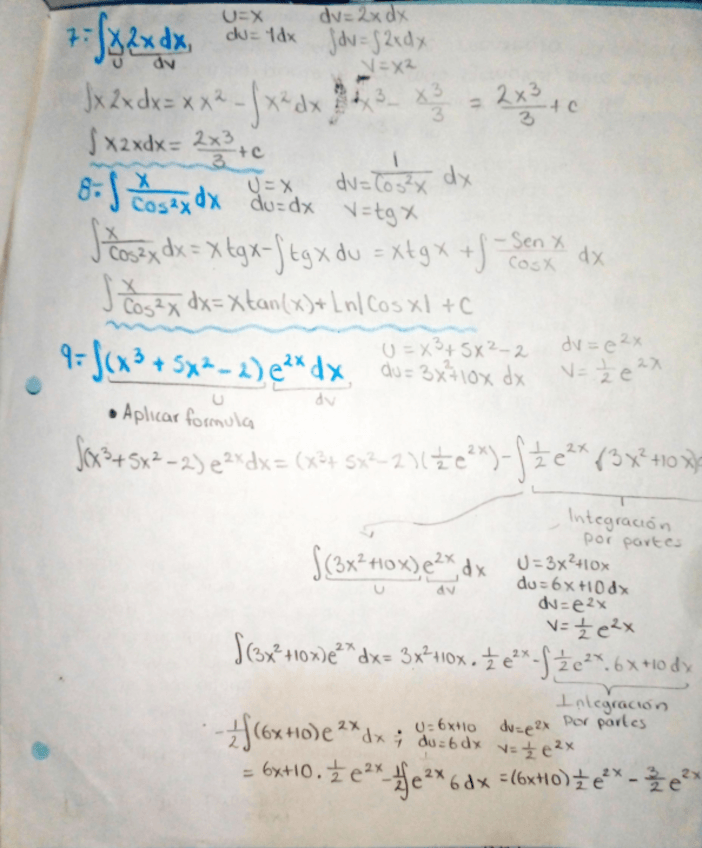 7=∫x 2x dx, u=x dv=2x dx
u dv du=1dx ∫dv=∫2xdx
v=x²
∫x2xdx= x x² - ∫x²dx x³- x³/3 = 2x³/3 +c
∫x2xdx= 2x³/3 +c
8=∫ x/Cos²x dx u=x dv= 1/Cos²x dx
du=dx v=tgx
∫ x/Cos²x dx = xtgx-∫tgx du = xtgx +∫ -Sen x/Cosx dx
∫ x/Cos²x dx=xtan(x)+Ln|Cosx| +C
9=∫(x³+5x²-2)e²ˣdx u=x³+5x²-2 dv=e²ˣ
u dv du=3x²+10x dx v=½e²ˣ
• Aplicar formula
∫(x³+5x²-2)e²ˣdx= (x³+5x²-2)(½e²ˣ)-∫½e²ˣ(3x²+10x)
Integración
por partes
∫(3x²+10x)e²ˣdx u=3x²+10x
u dv du=6x+10dx
dv=e²ˣ
v=½e²ˣ
∫(3x²+10x)e²ˣdx= 3x²+10x.½e²ˣ-∫½e²ˣ.6x+10dx
Integración
por partes
-½∫(6x+10)e²ˣdx; u=6x+10 dv=e²ˣ
du=6dx v=½e²ˣ
= 6x+10.½e²ˣ-½∫e²ˣ6dx =(6x+10)½e²ˣ-3/2e²ˣ